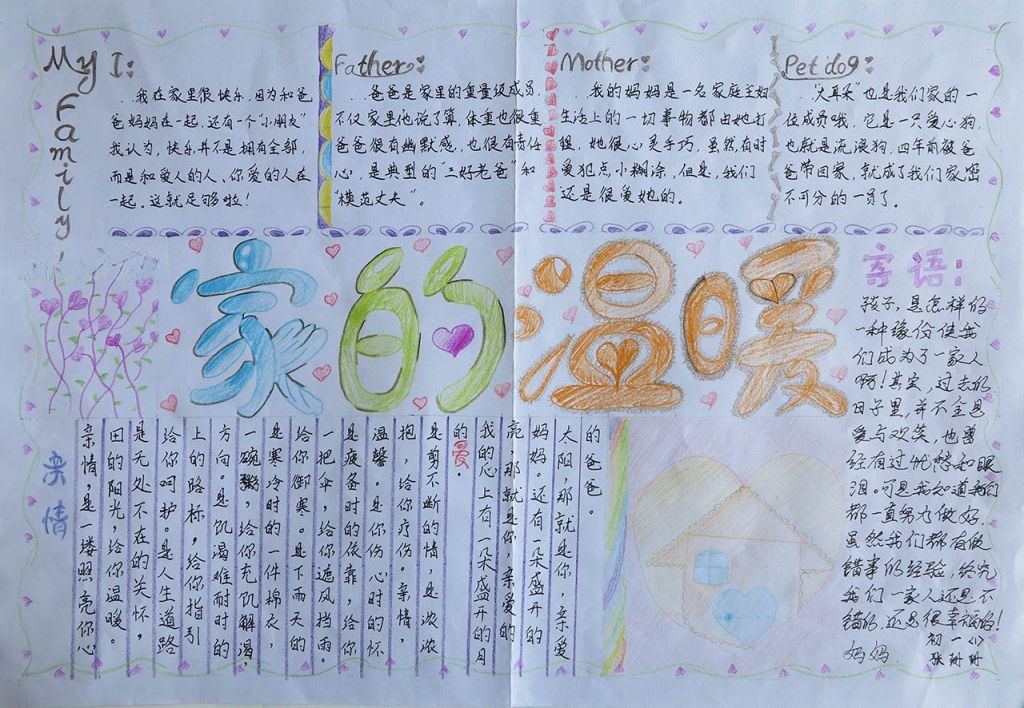 My Family
I:
我在家里很快乐,因为和爸
爸妈妈在一起,还有一个"小朋友"
我认为,快乐并不是拥有全部,
而是和爱人的人、你爱的人在
一起。这就足够啦!
Father:
爸爸是家里的重量级成员,
不仅家里他说了算,体重也很重
爸爸很有幽默感,也很有责任
心,是典型的"三好老爸"和
"模范丈夫"。
Mother:
我的妈妈是一名家庭主妇
生活上的一切事物都由她打
理,她很心灵手巧,虽然有时
爱犯点小糊涂,但是,我们
还是很爱她的。
Pet dog:
"大耳朵"也是我们家的一
位成员哦,它是一只爱心狗,
也就是流浪狗,四年前被爸
爸带回家,就成了我们家密
不可分的一员了。
家的温暖
寄语:
孩子,是怎样的
一种缘份使我
们成为了一家人
啊!其实,过去的
日子里,并不全是
爱与欢笑,也曾
经有过忧愁和眼
泪。可是我知道我们
都一直努力做好,
虽然我们都有做
错事的经验,终究
我们一家人还是不
错的,还是很幸福的!
妈妈
初一(1)
张珊珊
亲情
亲情,是一缕照亮你心
田的阳光,给你温暖。
是无处不在的关怀,
给你呵护。是人生道路
上的路标,给你指引
方向。是饥渴难耐时的
一碗粥,给你充饥解渴,
是寒冷时的一件棉衣,
给你御寒。是下雨天的
一把伞,给你遮风挡雨。
是疲惫时的依靠,给你
温馨。是你伤心时的怀
抱,给你疗伤。亲情,
是剪不断的情,是浓浓
的爱。
我的心上有一朵盛开的月
亮,那就是你,亲爱的
妈妈。还有一朵盛开的
太阳,那就是你,亲爱
的爸爸。